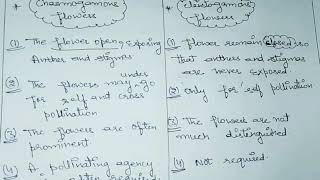 * Chasmogamous
flowers
(1) The flower open, exposing
Anther and stigma
(2) The flowers may go under
for self and cross
pollination
(3) The flowers are often
prominent
(4) A pollinating agency
often required
* Cleistogamous
flowers
(1) flower remain closed so
that anthers and stigmas
are never exposed.
(2) Only for self pollination
(3) The flowers are not
much distinguished
(4) Not required.